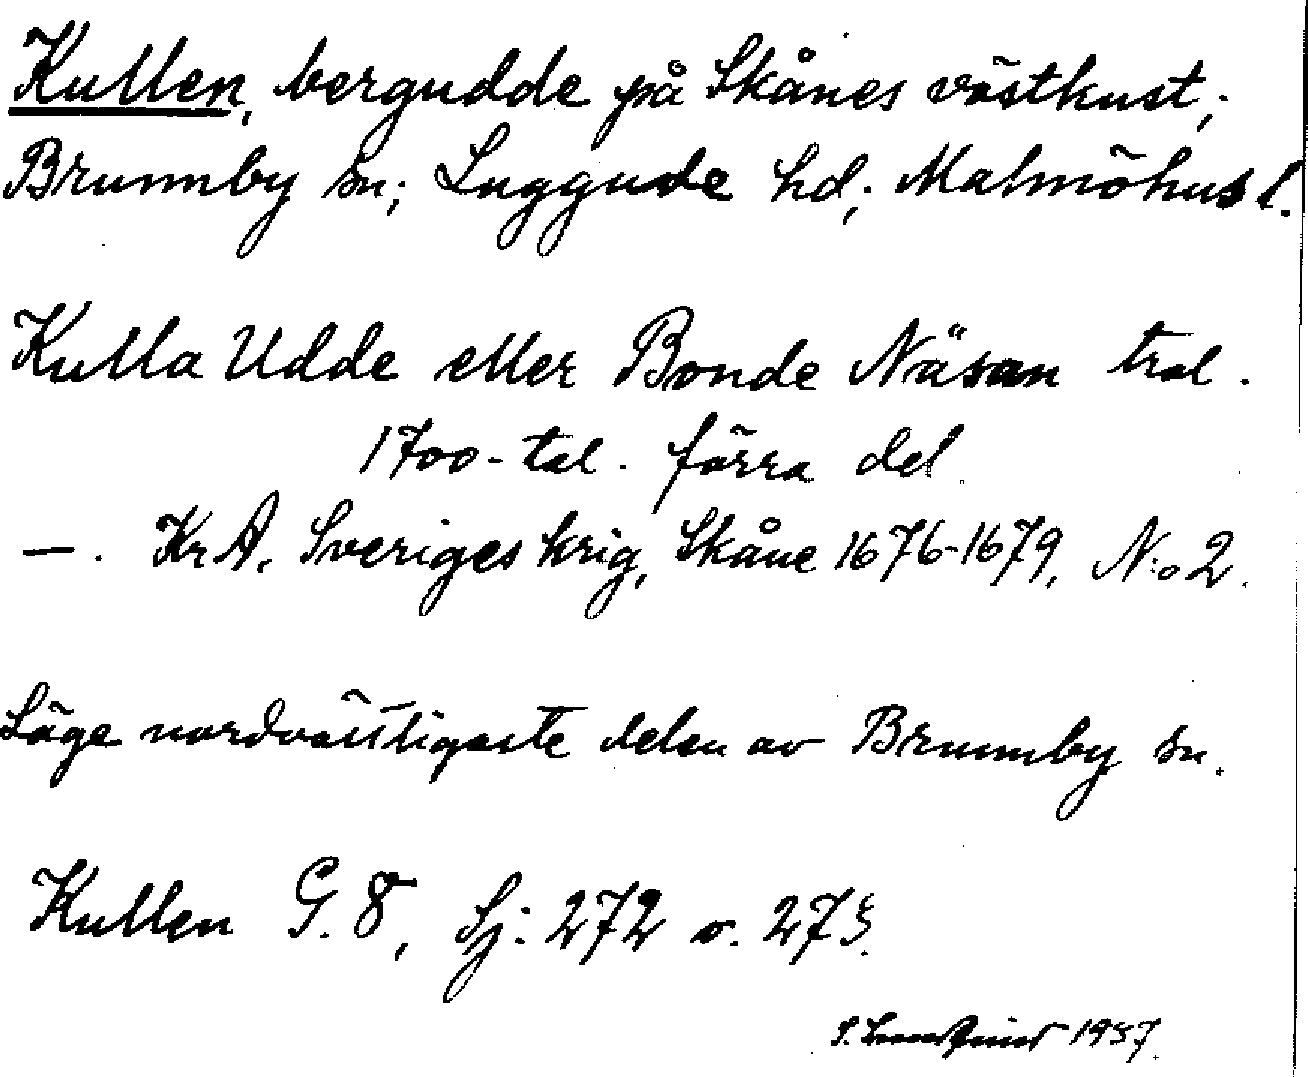 Kullen, bergudde på Skånes västkust;
Brunnby sn; Luggude hd; Malmöhus l.
Kulla Udde eller Bonde Näsan trol.
1700-tal. förra del.
—. KrA. Sveriges krig, Skåne 1676-1679, N:o 2.
Läge nordvästligaste delen av Brunnby sn.
Kullen G. 8, Sj: 272 o. 273.
1957